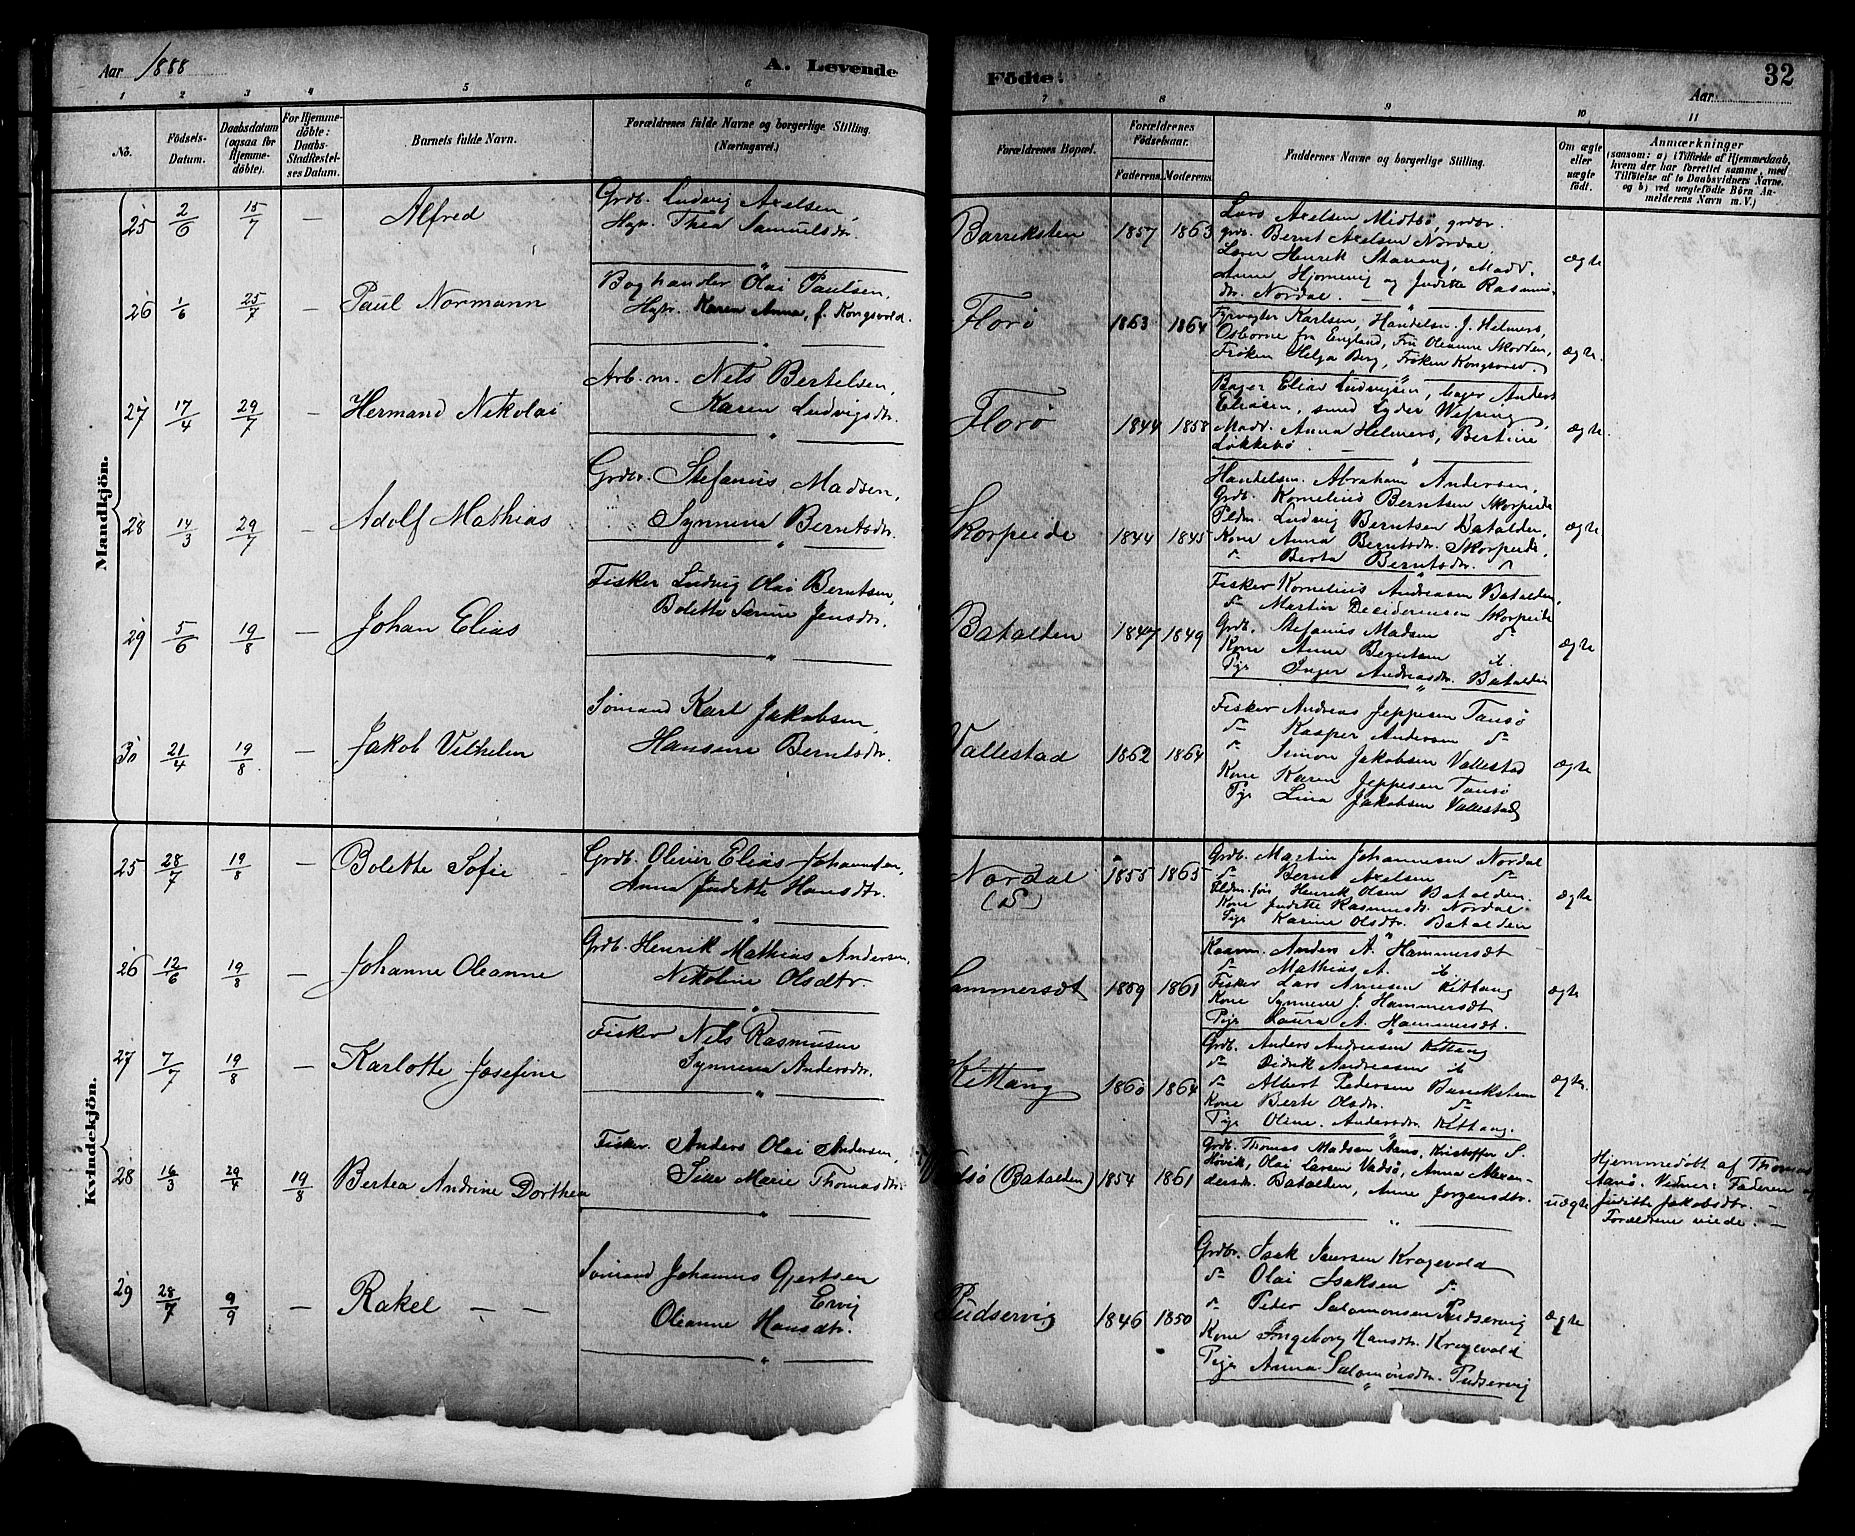 Aar 1888
A. Levende
Födte.
32
Aar
1 2 3 4 5 6 7 8 9 10 11
No.
Födsels-
Datum.
Daabsdatum
(ogsaa for
Hjemme-
döbte).
For Hjemme-
döbte:
Daabs-
Stadfæstel-
ses Datum.
Barnets fulde Navn.
Forældrenes fulde Navne og borgerlige Stilling.
(Næringsvei.)
Forældrenes Bopæl.
Forældrenes
Födselsaar.
Faderens. Moderens.
Faddernes Navne og borgerlige Stilling.
Om ægte
eller
uægte
födt.
Anmærkninger
(saasom: a) i Tilfælde af Hjemmedaab,
hvem der har forrettet samme, med
Tilföielse af to Daabsvidners Navne,
og b) ved uægtefödte Börn An-
melderens Navn m. V.)
Mandkjön.
25 2/6 15/7 — Alfred
Grdb. Ludvig Axelsen,
Hstr. Thea Samuelsdr.
Barriksten 1857 1863
Lars Axelsen Midtbö, grdbr.
grdb. Bernt Axelsen Nordal
Lærer Henrik Stavang, Madv.
Anne Hjornevig og Juditte Rasmus-
dr. Nordal. —
ægte
26 1/6 25/7 Paul Normann
Boghandler Olai Paulsen,
Hstr. Karen Anna, f. Kongsvold.
Florö 1863 1864
Fyrvogter Karlsen, Handelsm. J. Helmers,
Osborne fra England, Fru Oleanne Skodden,
Fröken Helga Berg, Fröken Kongsvold.
ægte.
27 17/4 29/7 — Hermand Nikolai
Arb. m. Nels Bertelsen,
Karen Ludvigsdr.
Florö 1844 1858
Bager Elias Ludvigsen, bager Anders
Eliasen, smed Lyder Wefring,
Madv. Anna Helmers, Bertine
Løkkebø. —
ægte.
28 14/3 29/7 — Adolf Mathias
Grdbr. Stefanus Madsen,
" Synneva Berntsdr.
Skorpeide 1844 1845
Handelsm. Abraham Andersen,
Grdb. Kornelius Berntsen Skorpeide
Pldm. Ludvig Berntsen Batalden,
Kone Anna Berntsdr. Skorpeide,
d° Berta Berntsdr. "
ægte
29 5/6 19/8 — Johan Elias
Fisker Ludvig Olai Berntsen,
Bolette Serine Jensdtr.
Batalden 1847 1849
Fisker Kornelius Andreasen Batalden,
d° Martin Desideriusen Skorpeide
Grdb. Stefanus Madsen d°
Kone Anne Berntsen ib.
Pige Inger Andreasdtr. Batalden
ægte
30 21/4 19/8 — Jakob Vilhelm
Sømand Karl Jakobsen,
Hansine Berntsdtr.
Vallestad 1862 1864
Fisker Andreas Jeppesen Tansø
d° Kasper Andersen d°
d° Simon Jakobsen Vallestad
Kone Karen Jeppesen Tansø
Pige Lina Jakobsen Vallestad
ægte
Kvindekjön.
25 28/7 19/8 — Bolette Sofie
Grdb. Oliver Elias Johannesen,
Anna Juditte Hansdtr.
Nordal 1855 1865
(S)
Grdb. Martin Johannesen Nordal
d° Bernt Axelsen d°
Pldm. søn Henrik Olsen Batalden.
Kone Juditte Rasmusdtr. Nordal.
Pige Karine Olsdtr. Batalden
ægte
26 12/6 19/8 — Johanne Oleanne
Grdb. Henrik Mathias Andersen,
Nikoline Olsdtr.
Hammersdt 1859 1861
Kaarm. Anders A. Hammersdt
d° Mathias A. ib
Fisker Lars Arnesen Kittang
Kone Synneve J. Hammersdt
Pige Laura A. Hammersdt.
ægte
27 7/7 19/8 — Karlotte Josefine
Fisker Nels Rasmusen
Synneva Andersdtr.
Kittang 1860 1864
Grdb. Anders Andreasen Kittang
d° Didrik Andreasen ib
d° Albert Pedersen Barrikstein
Kone Berte Olsdtr. d°
Pige Oline Andersdtr. Kittang.
ægte.
28 16/3 29/4 19/8 Bertea Andrine Dorthea
Fisker. Anders Olai Andersen,
Sille Marie Thomasdtr.
(Batalden) 1854 1861
Grdb. Thomas Madsen Aanø, Kristoffer S.
Høvik, Olai Larsen Vadsø, Anna Alexan-
dersdr. Batalden, Anne Jørgensdtr.
uægte
Hjemmedøbt af Thomas
Aanø. Vidner: Faderen og
Juditte Jakobsdtr. —
Forældrene viede. —
29 28/7 9/9 — Rakel — —
Sømand Johannes Gjertsen
Ervig
Oleanne Hansdtr.
Pudservig 1846 1850
Grdbr. Isak Iversen Kragevold
d° Olai Isaksen d°
d° Peder Salomonsen Pudservig
Kone Ingeborg Hansdtr. Kragevold
Pige Anna Salomonsdtr. Pudservig
ægte